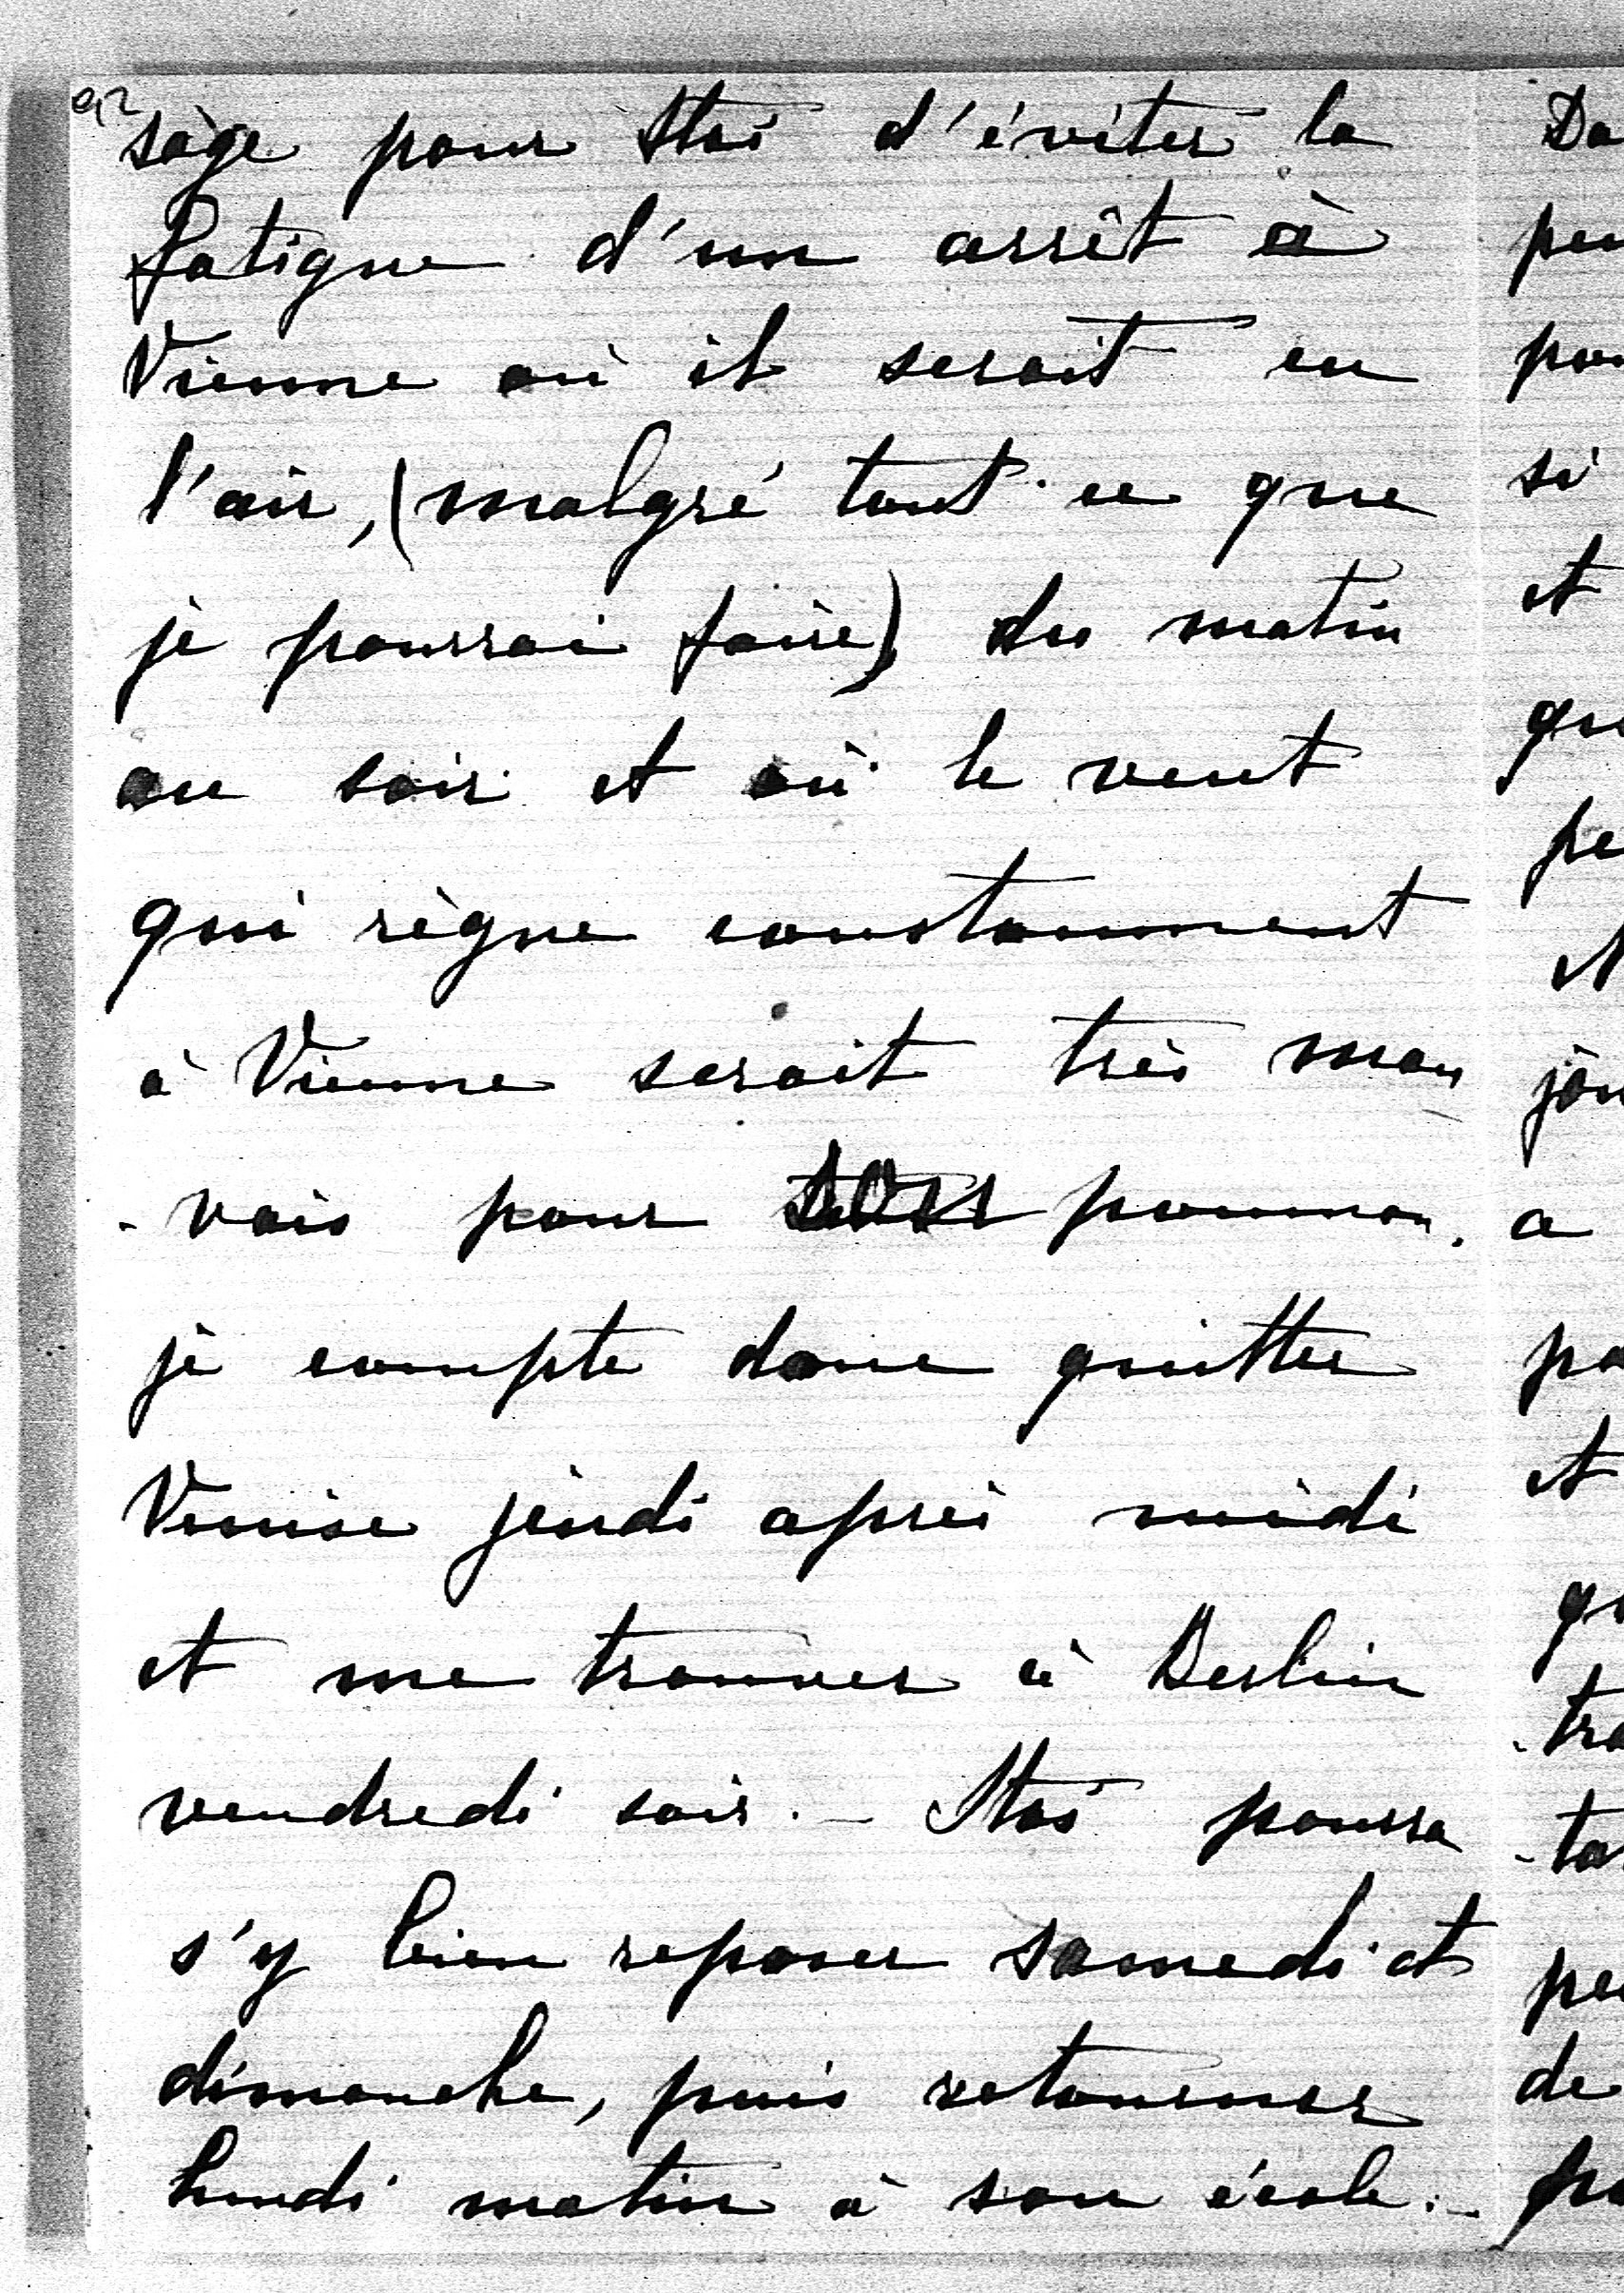 sage pour Stas d'éviter la
fatigue d'un arrêt à
Vienne où il serait en
l'air, (malgré tout ce que
je pourrai faire) du matin
au soir et où le vent
qui règne constamment
à Vienne serait très mau
-vais pour son poumon.
je compte donc quitter
Venise jeudi après midi
et me trouver à Berlin
vendredi soir. - Stas pourra
s'y bien reposer samedi et
dimanche, puis retourner
lundi matin à son école. -